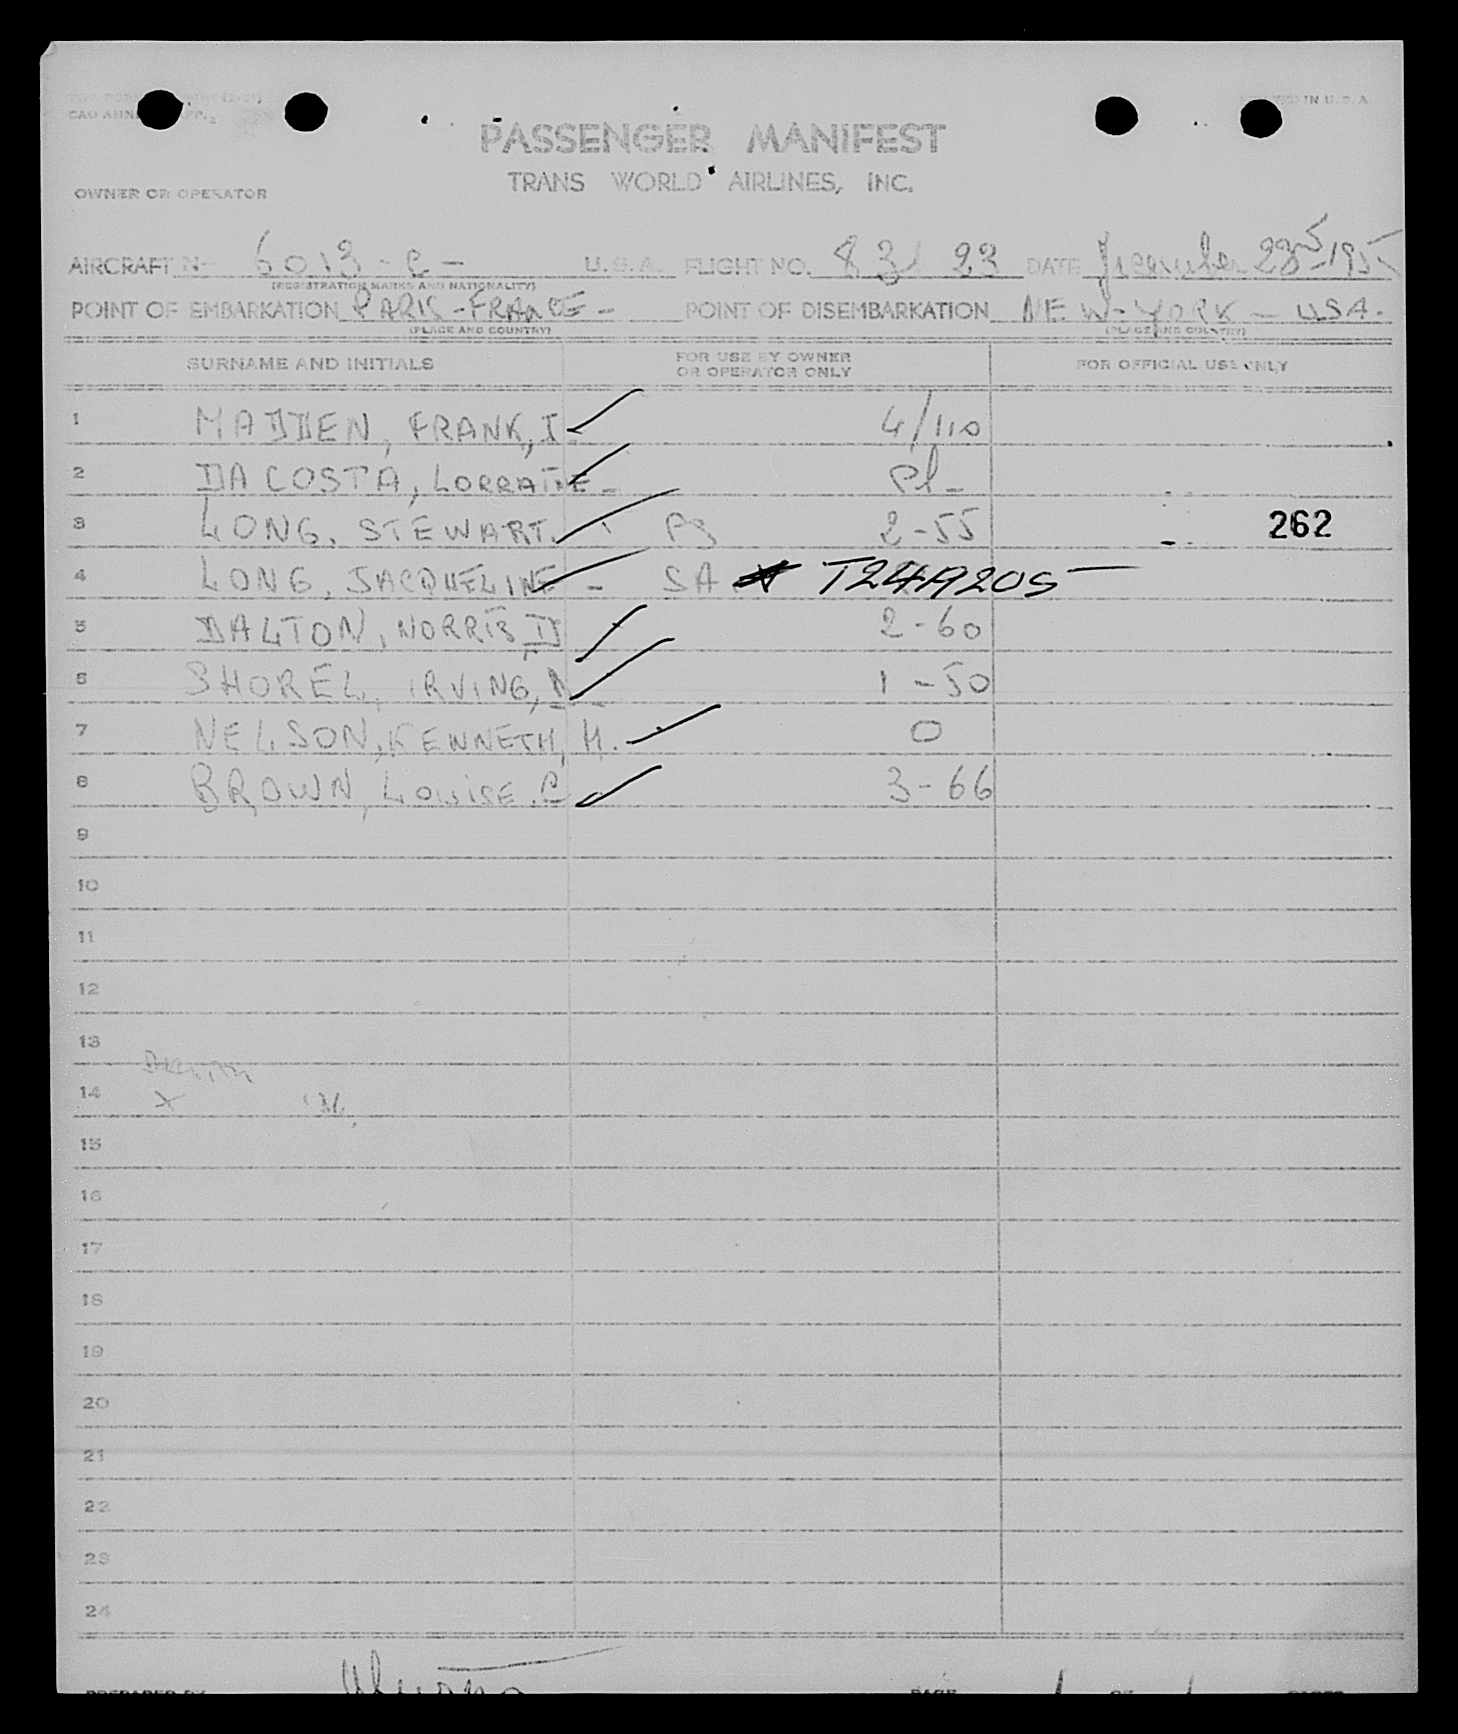 PRINTED IN U.S.A.
PASSENGER MANIFEST
TRANS WORLD AIRLINES, INC.
OWNER OR OPERATOR
AIRCRAFT No 6013-C- U.S.A. FLIGHT NO. 831 23 DATE December 23 1955
(REGISTRATION MARKS AND NATIONALITY)
POINT OF EMBARKATION PARIS-FRANCE- POINT OF DISEMBARKATION NEW-YORK - USA.
(PLACE AND COUNTRY) (PLACE AND COUNTRY)
SURNAME AND INITIALS FOR USE BY OWNER OR OPERATOR ONLY FOR OFFICIAL USE ONLY
1 MADDEN, FRANK, I. 4/110
2 DA COSTA, LORRAINE - Pl-
3 LONG, STEWART. Pg 2-55 262
4 LONG, JACQUELINE - SA T24A205
5 DALTON, NORRIS D 2-60
6 SHOREL, IRVING, A 1-50
7 NELSON, KENNETH, H. 0
8 BROWN, LOUISE. C 3-66
9
10
11
12
13
14 X
15
16
17
18
19
20
21
22
23
24
PREPARED BY PAGE 1 OF 1 PAGES